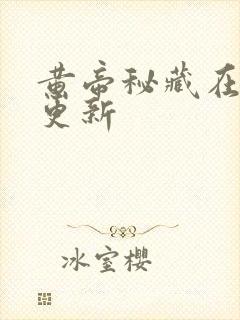 黄帝秘藏在
更新
冰室樱